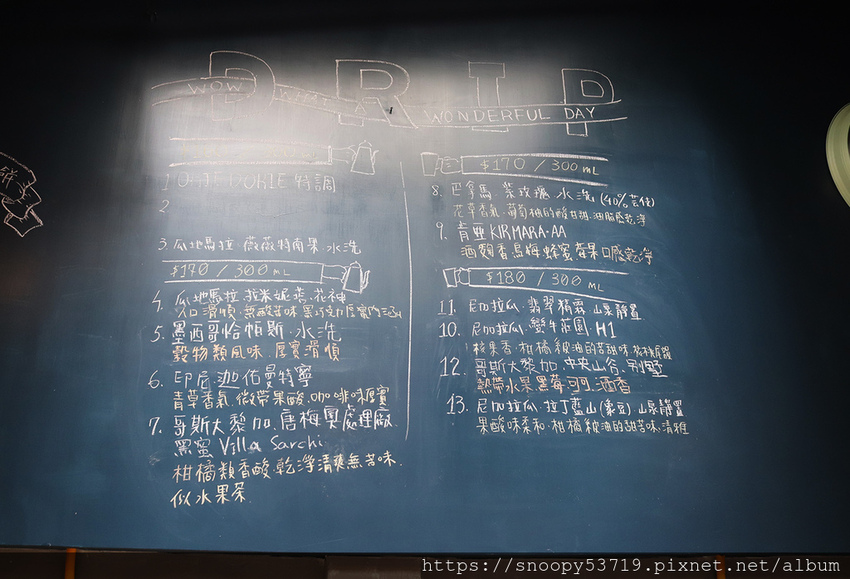 DRIP
WOW
WONDERFUL DAY
1 特調
2
3. 瓜地馬拉.薇薇特南果.水洗
$170 / 300 ML
4. 瓜地馬拉.拉米妮塔.花神
入口滑順.果酸苦味
5. 墨西哥恰帕斯.水洗
穀物類風味.厚實滑順
6. 印尼.迦佑曼特寧
青草香氣.微帶果酸.咖啡味厚實
7. 哥斯大黎加.唐梅奧處理廠
黑蜜 Villa Sarchi
柑橘類香酸.乾淨清爽無苦味.
似水果茶
$170 / 300 ML
8. 巴拿馬.紫玫瑰.水洗 (40%藝伎)
花草香氣.葡萄柚的酸甘甜.油脂感乾淨
9. 肯亞 KIRMARA.AA
酒麴香烏梅.蜂蜜莓果口感乾淨
$180 / 300 ML
11. 尼加拉瓜.翡翠積霖.山泉靜置
10. 尼加拉瓜.蠻牛莊園.H1
核果香.柑橘、奶油的苦甜味
12. 哥斯大黎加.中央山谷.別墅
熱帶水果黑莓.可可.酒香
13. 尼加拉瓜.拉丁藍山(象豆).山泉靜置
果酸味柔和.柑橘、奶油的甜苦味.清雅
https://snoopy53719.pixnet.net/album